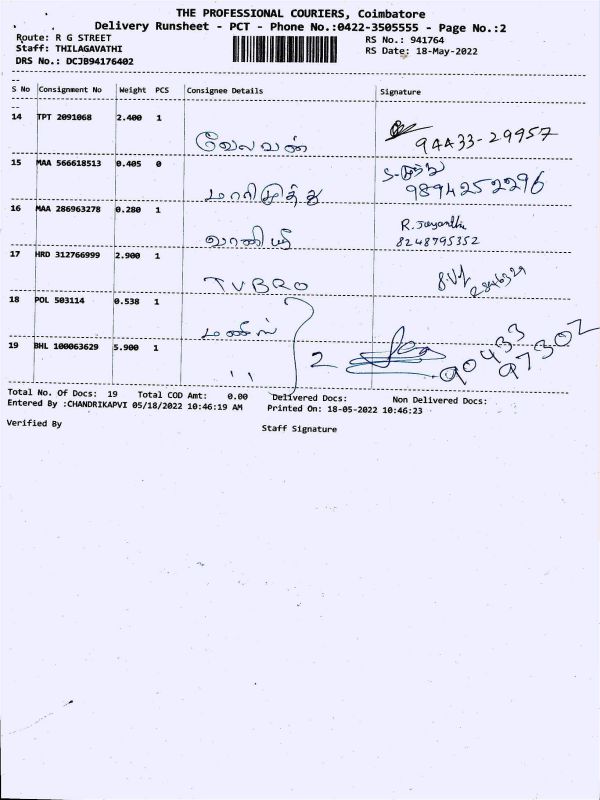 THE PROFESSIONAL COURIERS, Coimbatore
Delivery Runsheet - PCT - Phone No.:0422-3505555 - Page No.:2
Route: R G STREET
RS No.: 941764
Staff: THILAGAVATHI
RS Date: 18-May-2022
DRS No.: DCJB94176402
S No Consignment No Weight PCS Consignee Details Signature
14 TPT 2091068 2.400 1 வேலவன் 94433-29957
15 MAA 566618513 0.405 0 மாரிமுத்து 9894252296
16 MAA 286963278 0.280 1 வாணிஸ்ரீ R. Jayanthi
8248795352
17 HRD 312766999 2.900 1 TVBRO
18 POL 503114 0.538 1
19 BHL 100063629 5.900 1 " 2 90433
97302
Total No. Of Docs: 19 Total COD Amt: 0.00 Delivered Docs: Non Delivered Docs:
Entered By :CHANDRIKAPVI 05/18/2022 10:46:19 AM Printed On: 18-05-2022 10:46:23
Verified By
Staff Signature